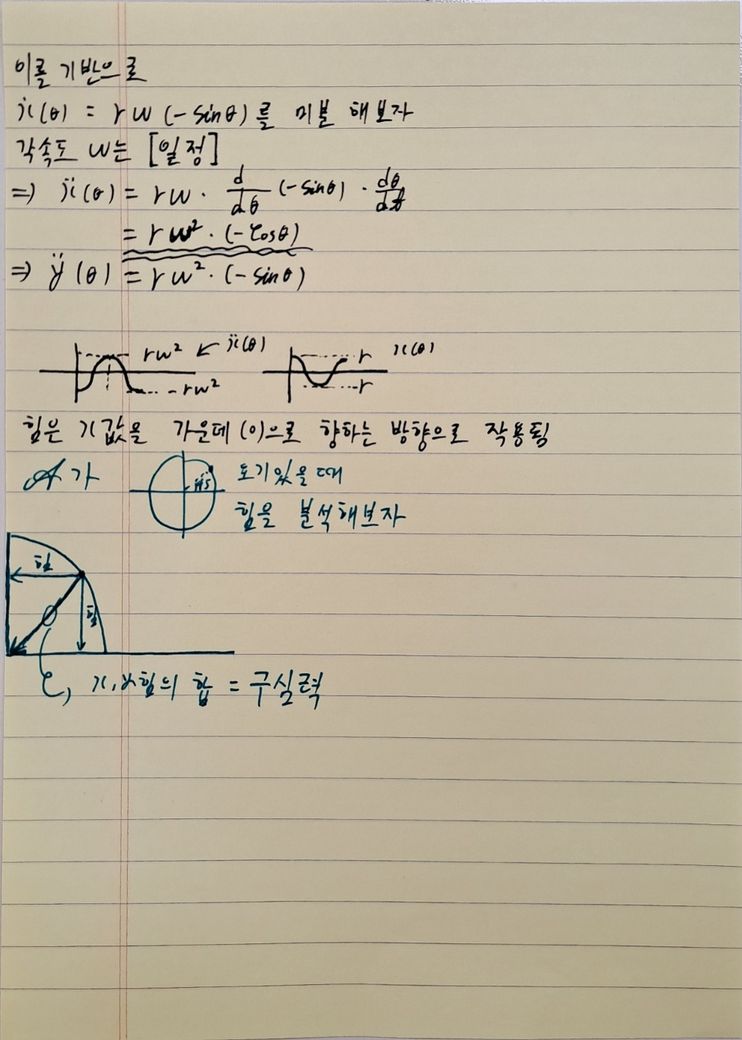 이를 기반으로
ẋ(θ) = rw(-sinθ)를 미분 해보자
각속도 w는 [일정]
⇒ ẍ(θ) = rw · d/dθ (-sinθ) · dθ/dt
= rw² · (-cosθ)
⇒ ÿ(θ) = rw² · (-sinθ)
rw² ← ẍ(θ) r x(θ)
-rw² -r
힘은 x값을 가운데 (0)으로 향하는 방향으로 작용됨
A가 45 여기있을때
힘을 분석해보자
힘
힘
x, y힘의 합 = 구심력